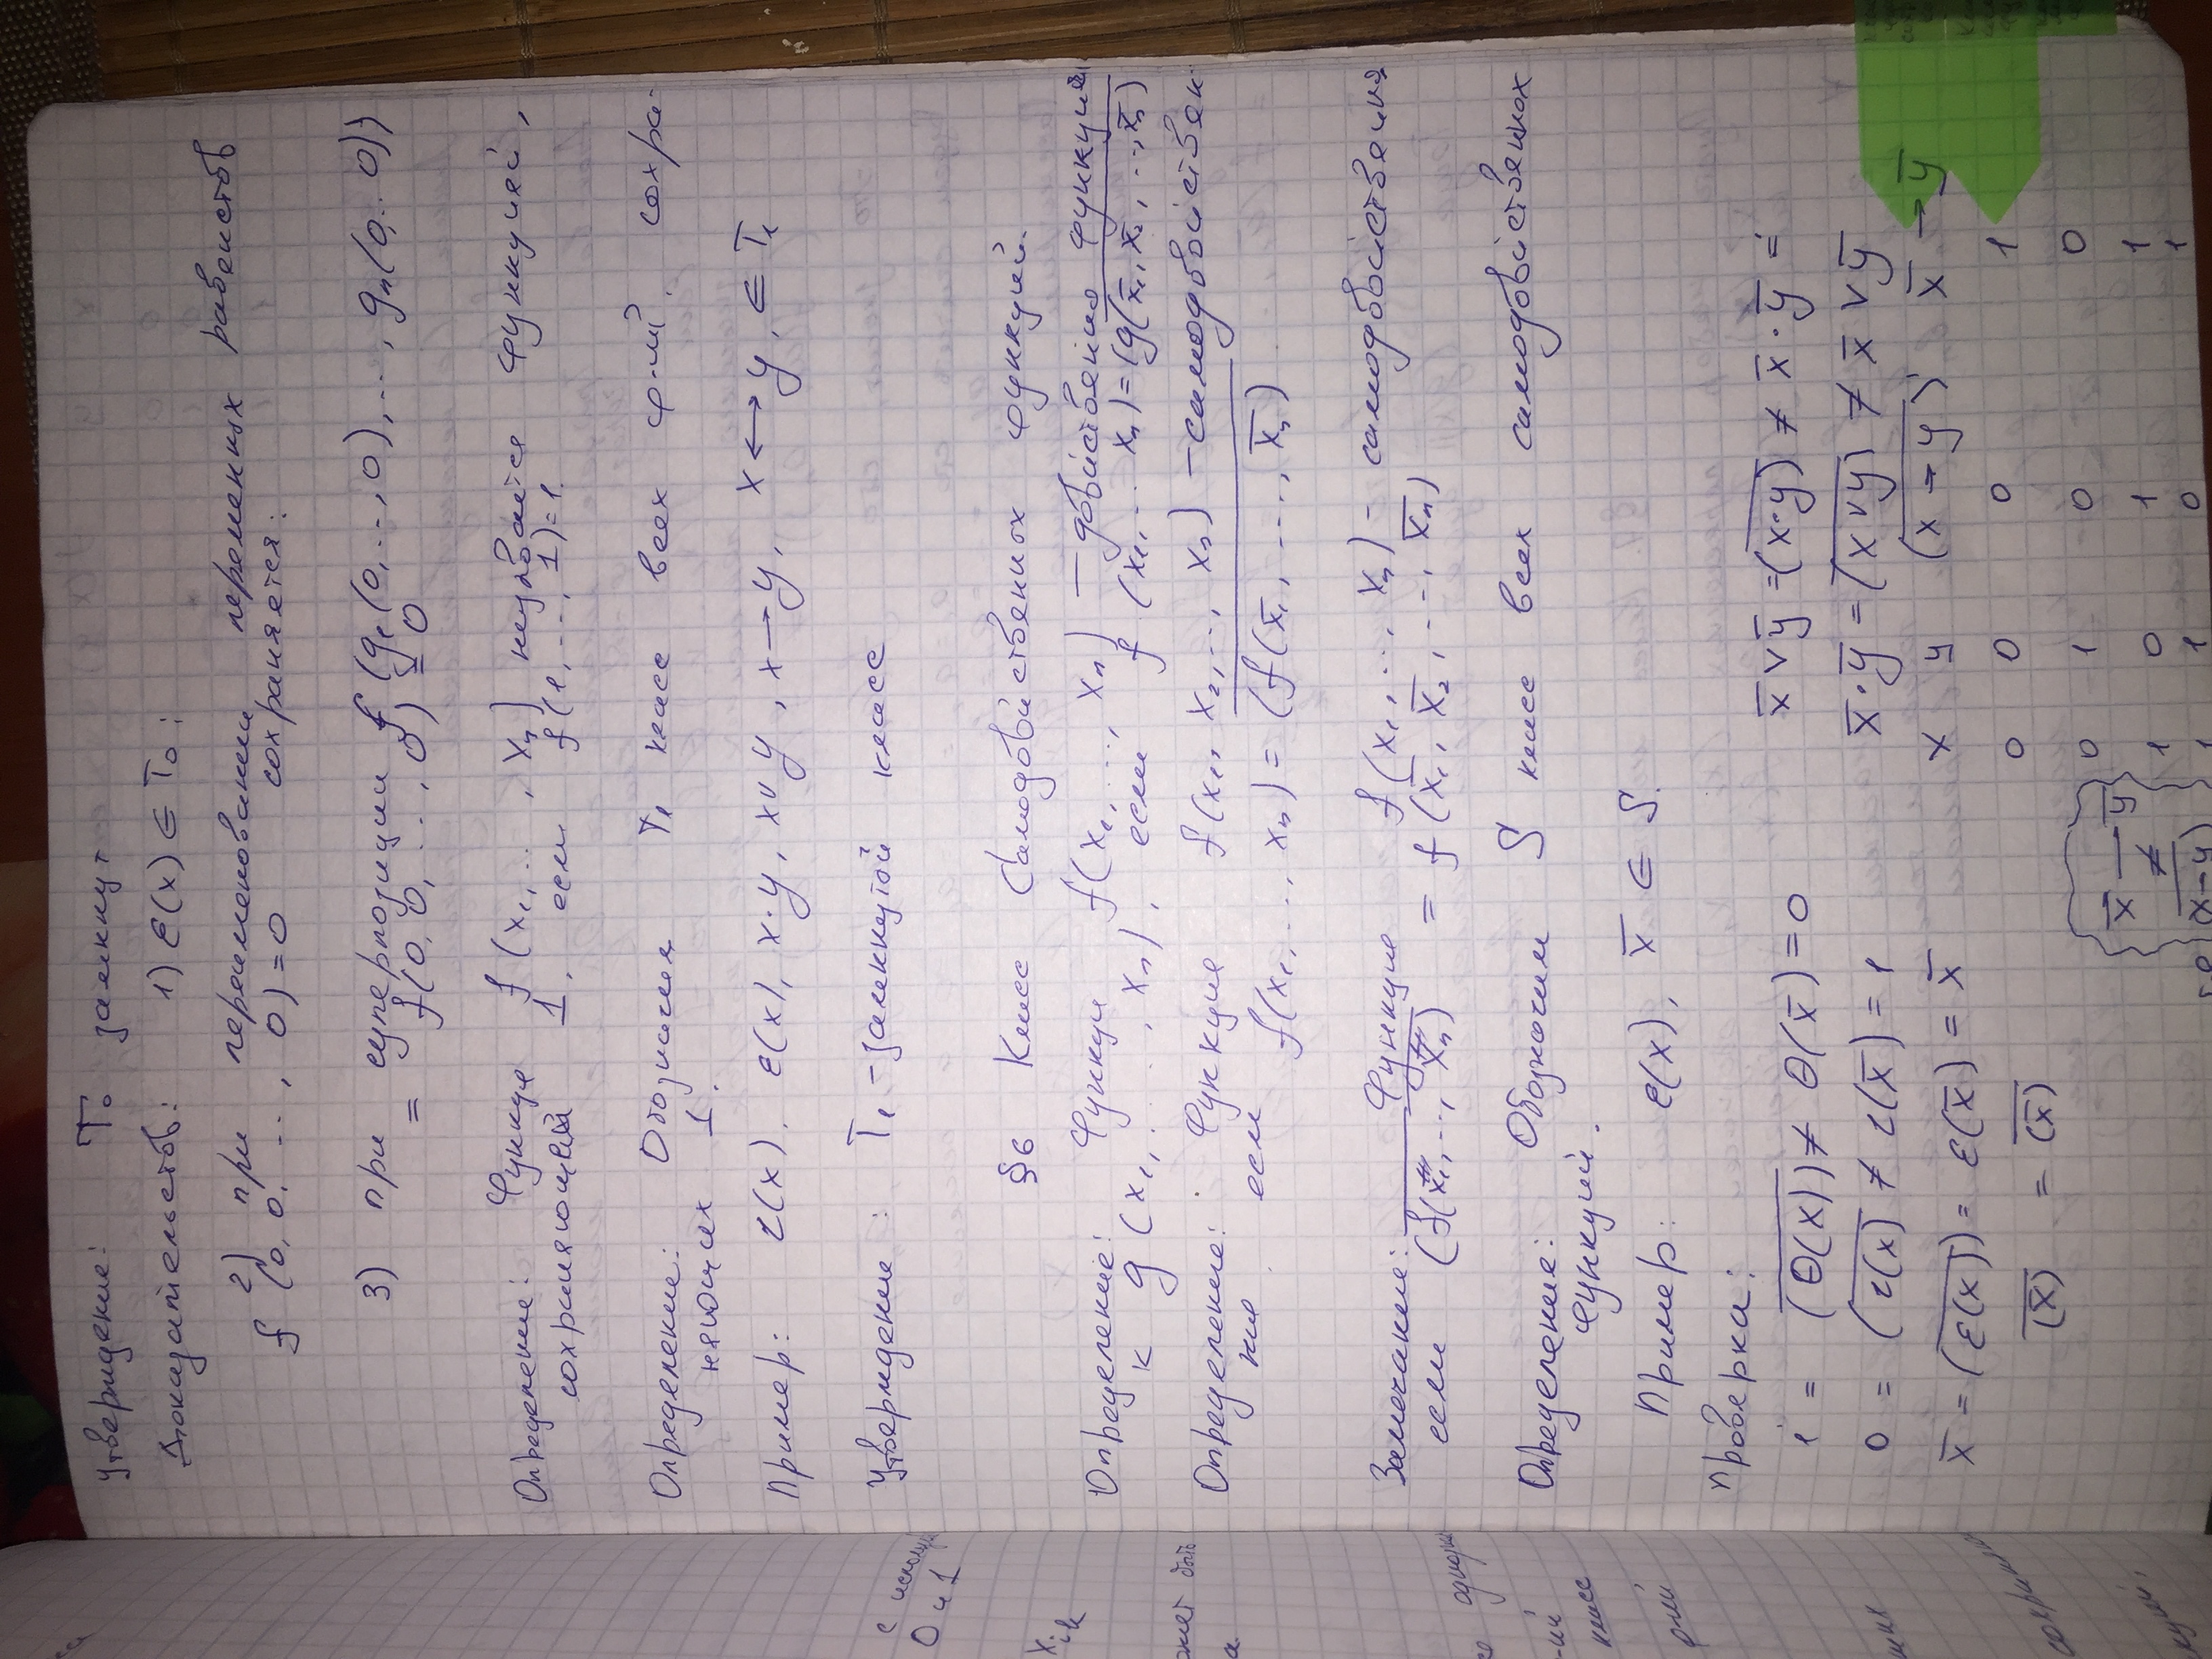 Утверждение: T₀ замкнут
Доказательств: 1) ε(x) ∈ T₀;
2) при переименовании переменных равенств
f (0, 0, ..., 0) = 0 сохраняется.
3) при суперпозиции f (g₁(0,...,0),..., gₙ(0,..0))
= f(0, 0, ..., 0) = 0
Определение: Функця f (x₁, ..., xₙ) называется функцией,
сохраняющей 1, если f(1, ..., 1)=1.
Определение: Обозначим T₁ класс всех ф-ий, сохра-
няющих 1.
Пример: τ(x), ε(x), x·y, x∨y, x→y, x↔y, ∈ T₁
Утверждение: T₁ - замкнутой класс
§6 Класс Самодвойственных функций.
Определение: Функци f(x₁, ..., xₙ) — двойственна функции
к g (x₁, ..., xₙ), если f (x₁,... xₙ)=(g(x̅₁, x̅₂, ..., x̅ₙ)̅
Определение: Функция f(x₁, x₂,..., xₙ) - самодвойствен-
ная если
f(x₁, ..., xₙ) = (f(x̅₁, ..., x̅ₙ)̅
Замечание: Функция f(x₁, ..., xₙ) - самодвойственна,
если (f(x₁,..., xₙ)̅ = f (x̅₁, x̅₂, ..., x̅ₙ)
Определение: Обозначим S класс всех самодвойственных
функций.
Пример: ε(x), x̅ ∈ S.
Проверка:
1 = (θ(x))̅ ≠ θ(x̅) = 0
x̅ ∨ y̅ = (x·y)̅ ≠ x̅ · y̅ =
0 = (τ(x)̅ ≠ τ(x̅) = 1
x̅ · y̅ = (x ∨ y)̅ ≠ x̅ ∨ y̅
x̅ = (ε(x))̅ = ε(x̅) = x̅
x y (x → y)̅ x̅ → y̅
0 0 0 1
(x̅)̅ = (x̅)̅
0 1 0 0
x̅ → y̅
≠
1 0 1 1
(x→y)̅
1 1 0 1
с использ
0 и 1
xᵢₖ
ожет быть
а.
однозн
-ий
класс
ф-ий
сохраняю